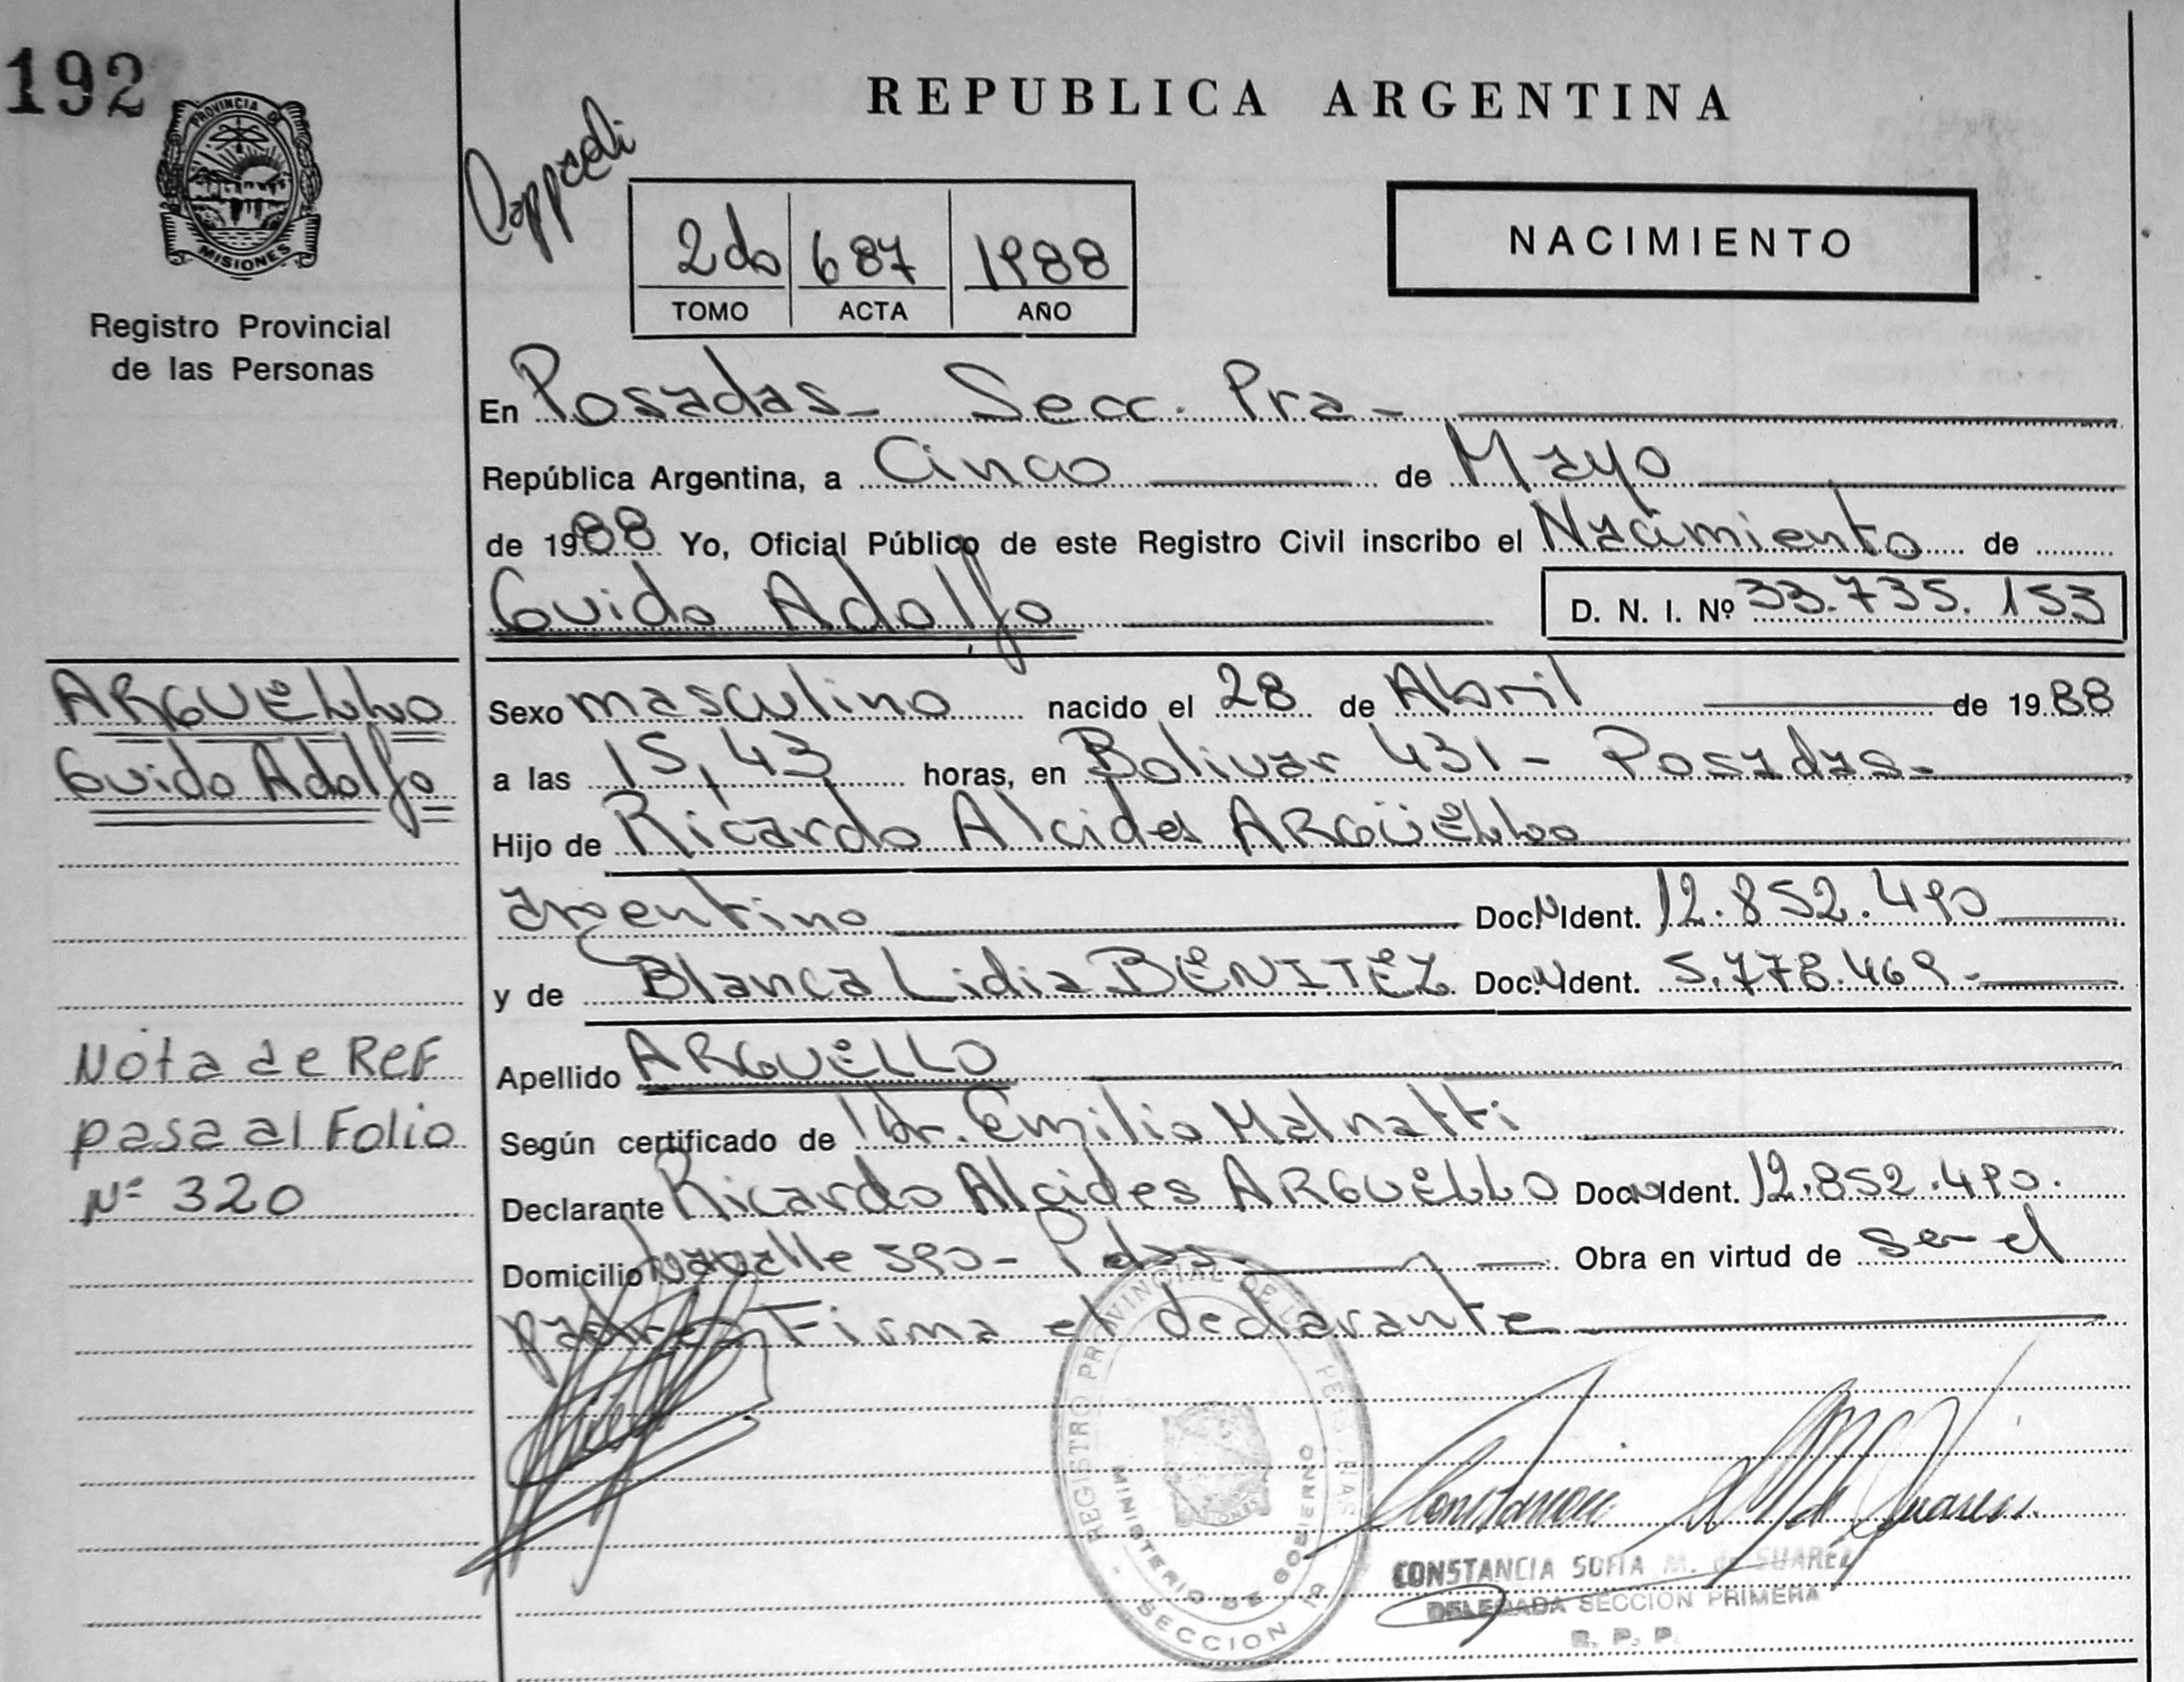 192
PROVINCIA D
MISIONES
Registro Provincial
de las Personas
REPUBLICA ARGENTINA
2do 687 1988
TOMO ACTA AÑO
NACIMIENTO
En Posadas - Secc. Pra -
República Argentina, a Cinco de Mayo
de 1988 Yo, Oficial Público de este Registro Civil inscribo el Nacimiento de
Guido Adolfo D. N. I. Nº 33.735.153
ARGUELLO
Guido Adolfo
Sexo masculino nacido el 28 de Abril de 1988
a las 15,43 horas, en Bolivar 431 - Posadas -
Hijo de Ricardo Alcides ARGÜELLO
argentino Doc. N Ident. 12.852.490
y de Blanca Lidia BENITEZ Doc. N Ident. 5.778.469.-
Nota de Ref
pasa al Folio
Nº 320
Apellido ARGUELLO
Según certificado de Dr. Emilio Malnatti
Declarante Ricardo Alcides ARGUELLO Doc. N Ident. 12.852.490.
Domicilio Lavalle 590 - Pdas - Obra en virtud de ser el
padre Firma el declarante
REGISTRO PROVINCIAL DE LAS PERSONAS
MINISTERIO DE GOBIERNO
- SECCION 1ª
CONSTANCIA SOFIA M. de SUAREZ
DELEGADA SECCION PRIMERA
R. P. P.